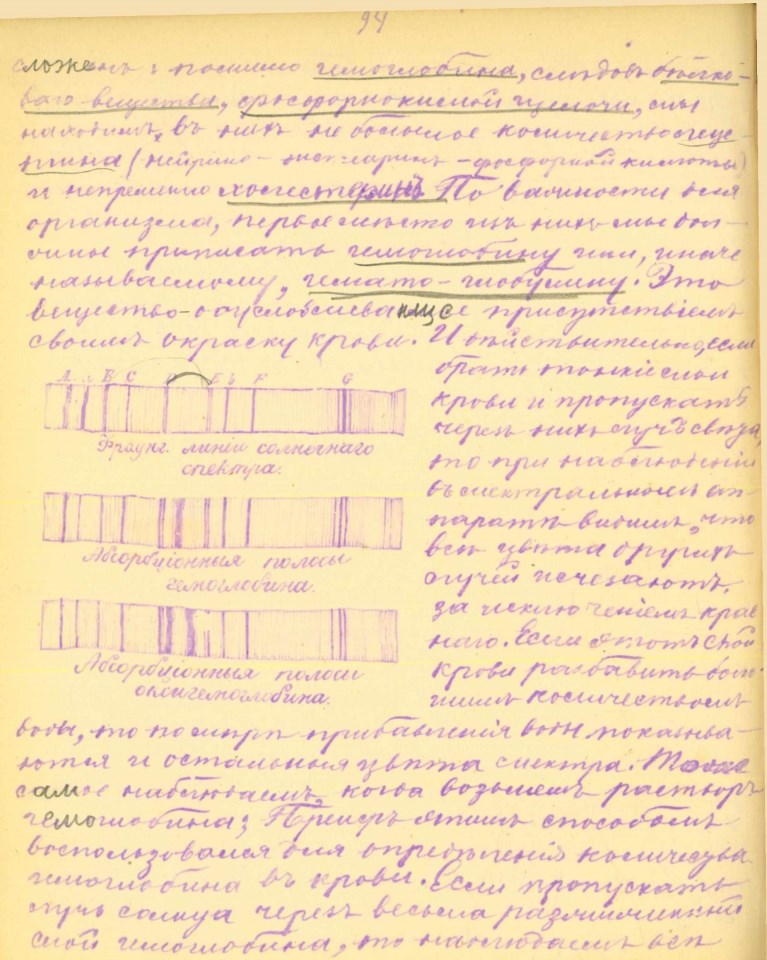 94
сложенъ: помимо гемоглобина, слѣдовъ бѣлко-
ваго вещества, фосфорнокислой щелочи, мы
находимъ въ нихъ не большое количество леци-
тина (нейрино-              -фосфорной кислоты)
и непремѣнно холестеринъ. По важности для
организма, первое мѣсто изъ нихъ мы дол-
жны приписать гемоглобину или, иначе
называемому, гемато-глобулину. Это
вещество обусловливающее присутствіемъ
своимъ окраску крови. И дѣйствительно, если
брать тонкіе слои
крови и пропускать
черезъ нихъ лучъ свѣта,
то при наблюденіи
въ спектральномъ ап-
паратѣ видимъ, что
всѣ цвѣта другихъ
лучей исчезаютъ,
за исключеніемъ крас
наго. Если этотъ слой
крови разбавить боль-
шимъ количествомъ
A a B C E b F G
Фраунг. линіи солнечнаго
спектра.
Абсорбціонныя полосы
гемоглобина.
Абсорбціонныя полосы
оксигемоглобина.
воды, то по мѣрѣ прибавленія воды показыва-
ются и остальныя цвѣта спектра. Тоже
самое наблюдаемъ, когда возьмемъ растворъ
гемоглобина; Прейеръ этимъ способомъ
воспользовался для опредѣленія количества
гемоглобина въ крови. Если пропускать
лучъ солнца черезъ весьма разжиженный
слой гемоглобина, то наблюдаемъ всѣ